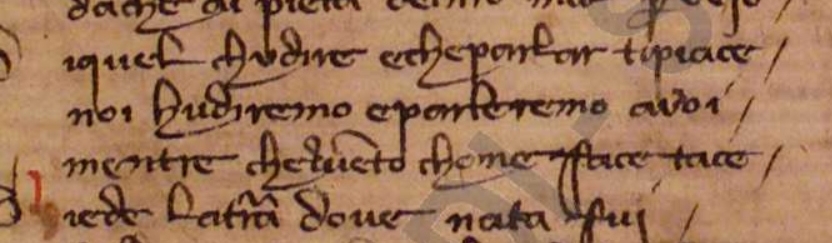 dache ai pieta
iquel chudire echeparlar tipiace /
noi hudiremo eparleremo avoi /
mentre chelvēto chome sface tace /
iede latr̄a dove nata fui /